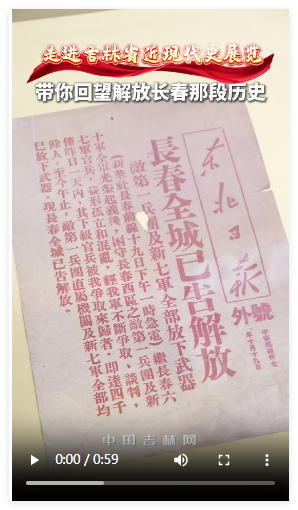 走进吉林省近现代史展览
带你回望解放长春那段历史
东北日报
號外
中華民國卅七
年十月十九日
長春全城已告解放
敵第一兵團及新七軍全部放下武器
(新華社長春前線十九日下午一時急電)繼長春六
十軍全軍光榮起義後,困守長春西區之敵第一兵團及新
七軍官兵,益形孤立和混亂,經我軍不斷爭取、談判,
僅昨日一天內,其下級官兵被我爭取來歸者,即達四千
餘人,至今午止,敵第一兵團直屬機關及新七軍全部均
已放下武器。現長春全城已告解放。
中国吉林网
0:00 / 0:59